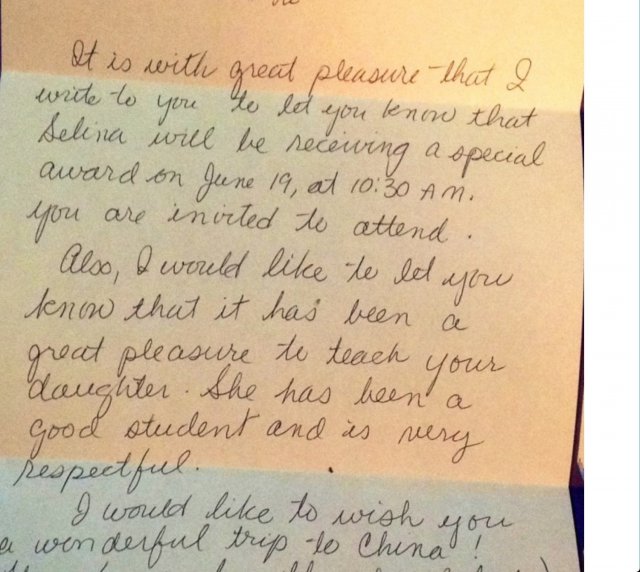 It is with great pleasure that I
write to you to let you know that
Selina will be receiving a special
award on June 19, at 10:30 AM.
you are invited to attend.
Also, I would like to let you
know that it has been a
great pleasure to teach your
daughter. She has been a
good student and is very
respectful.
I would like to wish you
a wonderful trip to China!